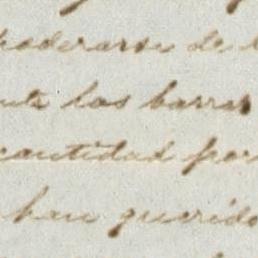 poderarse de l
nte las barras
cantidad por
han querido